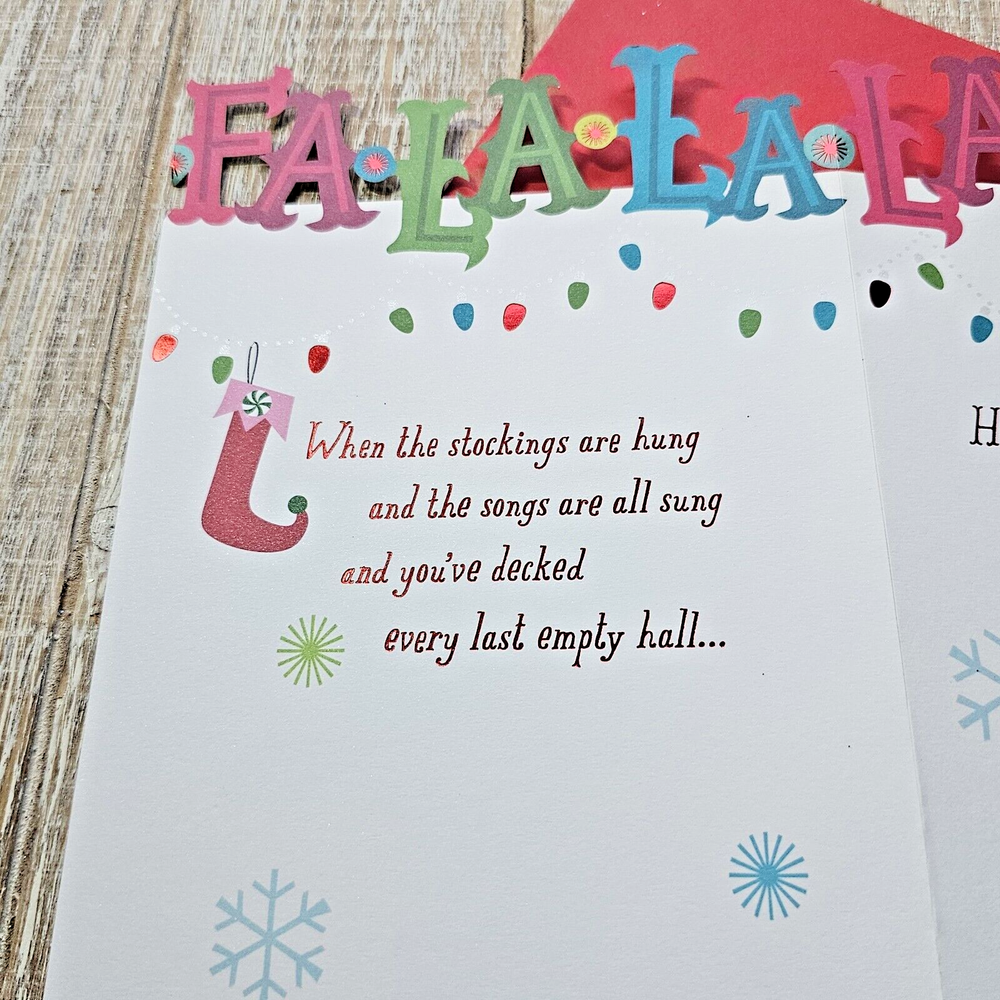 FA•LA•LA•LA
When the stockings are hung
and the songs are all sung
and you've decked
every last empty hall...
H